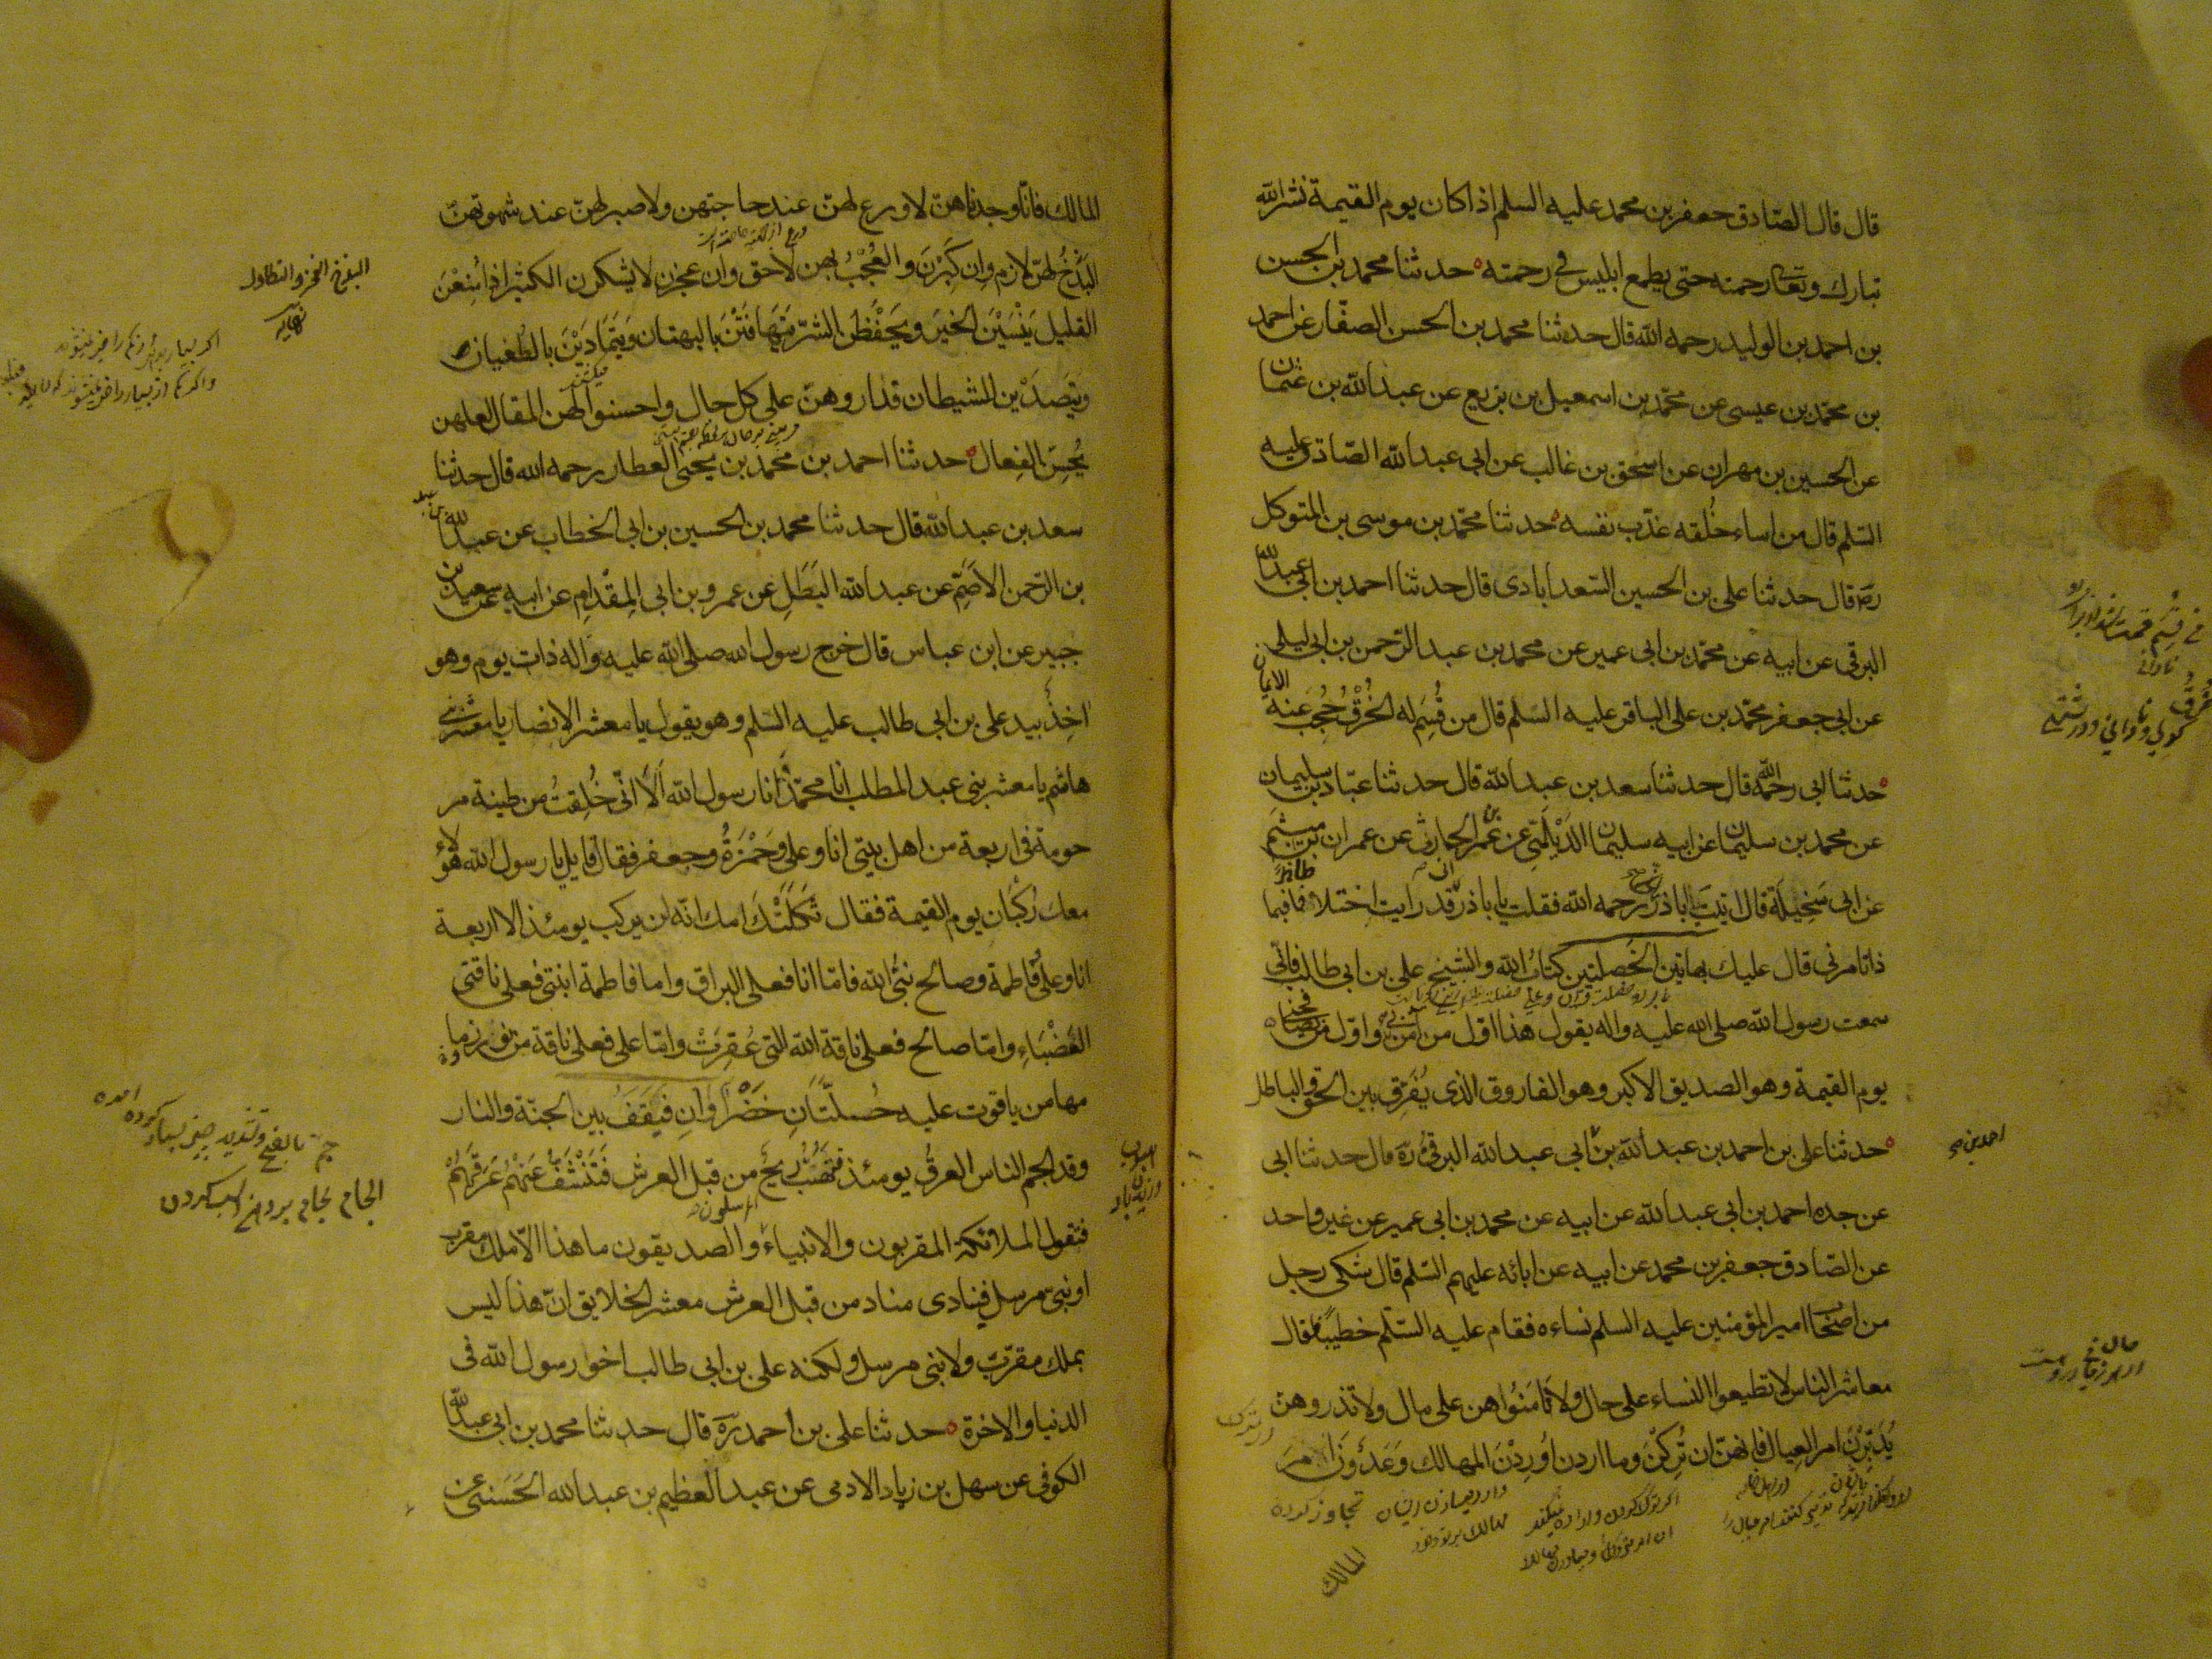 قال قال الصادق جعفر بن محمد عليه السلم اذا كان يوم القيمة نشر الله
تبارك وتعالى رحمته حتى يطمع ابليس في رحمته حدثنا محمد بن الحسن
بن احمد بن الوليد رحمه الله قال حدثنا محمد بن الحسن الصفار عن احمد
بن محمد بن عيسى عن محمد بن اسمعيل بن بزيع عن عبد الله بن عثمان
عن الحسين بن مهران عن اسحق بن غالب عن ابي عبد الله الصادق عليه
السلم قال من اساء خُلقه عذّب نفسه حدثنا محمد بن موسى بن المتوكل
ره قال حدثنا علي بن الحسين السعدابادي قال حدثنا احمد بن ابي عبد الله
البرقي عن ابيه عن محمد بن ابي عمير عن محمد بن عبد الرحمن بن ابي ليلى
عن ابي جعفر محمد بن علي الباقر عليه السلم قال من قُسِم له الخُرْقُ حُجِبَ عنه الايمان
حدثنا ابي رحمه الله قال حدثنا سعد بن عبد الله قال حدثنا عبّاد بن سليمان
عن محمد بن سليمان عن ابيه سليمان الدَّيْلَمّي عن عُمَر الحارث عن عمران بن ميثم
عن ابي سَخِيلَة قال اتيتُ اباذر رحمه الله فقلت يا باذر اني قد رايت اختلافا فبما
ذا تامرني قال عليك بهاتين الخصلتين كتاب الله والشيخ علي بن ابي طالب فاني
سمعت رسول الله صلى الله عليه واله يقول هذا اول من امن بي واول من يصافحني
يوم القيمة وهو الصديق الاكبر وهو الفاروق الذي يُفَرِّق بين الحق والباطل
حدثنا علي بن احمد بن عبد الله بن ابي عبد الله البرقي ره قال حدثنا ابي
احمد بن صح
عن جده احمد بن ابي عبد الله عن ابيه عن محمد بن ابي عمير عن غير واحد
عن الصادق جعفر بن محمد عن ابيه عن ابائه عليهم السلم قال شكى رجل
من اصحاب امير المؤمنين عليه السلم نساءه فقام عليه السلم خطيبًا فقال
معاشر الناس لا تطيعوا النساء على حال ولا تَامَنُواهن على مال ولا تذروهن
يُدَبِّرْنَ امر العيال فانهنّ ان تُرِكْنَ وما اردن اَوْرَدْنَ المهالك وَعَدَوْنَ امر
المالك
المالك فانّا وجدناهنّ لا ورع لهنّ عند حاجتهن ولا صبر لهنّ عند شهوتهنّ
البَذَخُ لهنّ لازم وان كَبِرْنَ والعُجْبُ بهن لاحق وان عجزن لا يشكرن الكثير اذا مُنِعْنَ
البذخ الفخر والتطاول
نهايه
القليل يَنْسَيْنَ الخيرَ ويَحْفَظْنَ الشرّ يَتَهَافَتْنَ بالبهتان ويَتَمَادَيْنَ بالطغيان
ويَتَصَدَّيْنَ للشيطان فداروهنّ على كل حال واحسنوا لهن المقال لعلهن
يُحْسِنَّ الفِعال حدثنا احمد بن محمد بن يحيى العطار رحمه الله قال حدثنا
سعد بن عبد الله قال حدثنا محمد بن الحسين بن ابي الخطاب عن عبد الله
بن الرحمن الاصَمّ عن عبد الله البَطَل عن عمرو بن ابي المِقْدام عن ابيه عن سعيد بن
جبير عن ابن عباس قال خرج رسول الله صلى الله عليه واله ذات يوم وهو
اخِذٌ بيد علي بن ابي طالب عليه السلم وهو يقول يا معشر الانصار يا معشر بني
هاشم يا معشر بني عبد المطلب انا محمدٌ انا رسول الله اَلا انّي خُلِقتُ من طينة مر
حومة في اربعة من اهل بيتي انا وعلي وحَمْزَةُ وجعفر فقال قايل يا رسول الله هؤلاء
معك رُكْبَان يوم القيمة فقال ثَكَلَتْكَ امك انّه لن يركب يومئذ الا اربعة
انا وعليّ وفاطمة وصالح نبيُّ الله فامّا انا فعلى البراق واما فاطمة ابنتي فعلى ناقتي
العَضْبَاءِ وامّا صالح فعلى ناقة الله التي عُقِرَتْ وامّا علي فعلى ناقة من نور زما
مها من ياقوت عليه حُسلّتَانِ خَضْراوَانِ فيَقفُ بين الجنّة والنار
وقد الجم الناس العرقُ يومئذ فتهُبّ رِيحٌ من قبل العرش فَتَنْشَفُ عَنْهُمْ عَرَقَهُمْ
فتقول الملائكة المقربون والانبياء والصديقون ما هذا الّا ملك مقرب
او نبيّ مرسل فينادي مناد من قبل العرش معشر الخلايق انّ هذا ليس
بملك مقرّبٍ ولا نبي مرسل ولكنه علي بن ابي طالب اخو رسول الله في
الدنيا والاخرة حدثنا علي بن احمد ره قال حدثنا محمد بن ابي عبد الله
الكوفي عن سهل بن زياد الادمي عن عبد العظيم بن عبد الله الحَسَنيّ عن